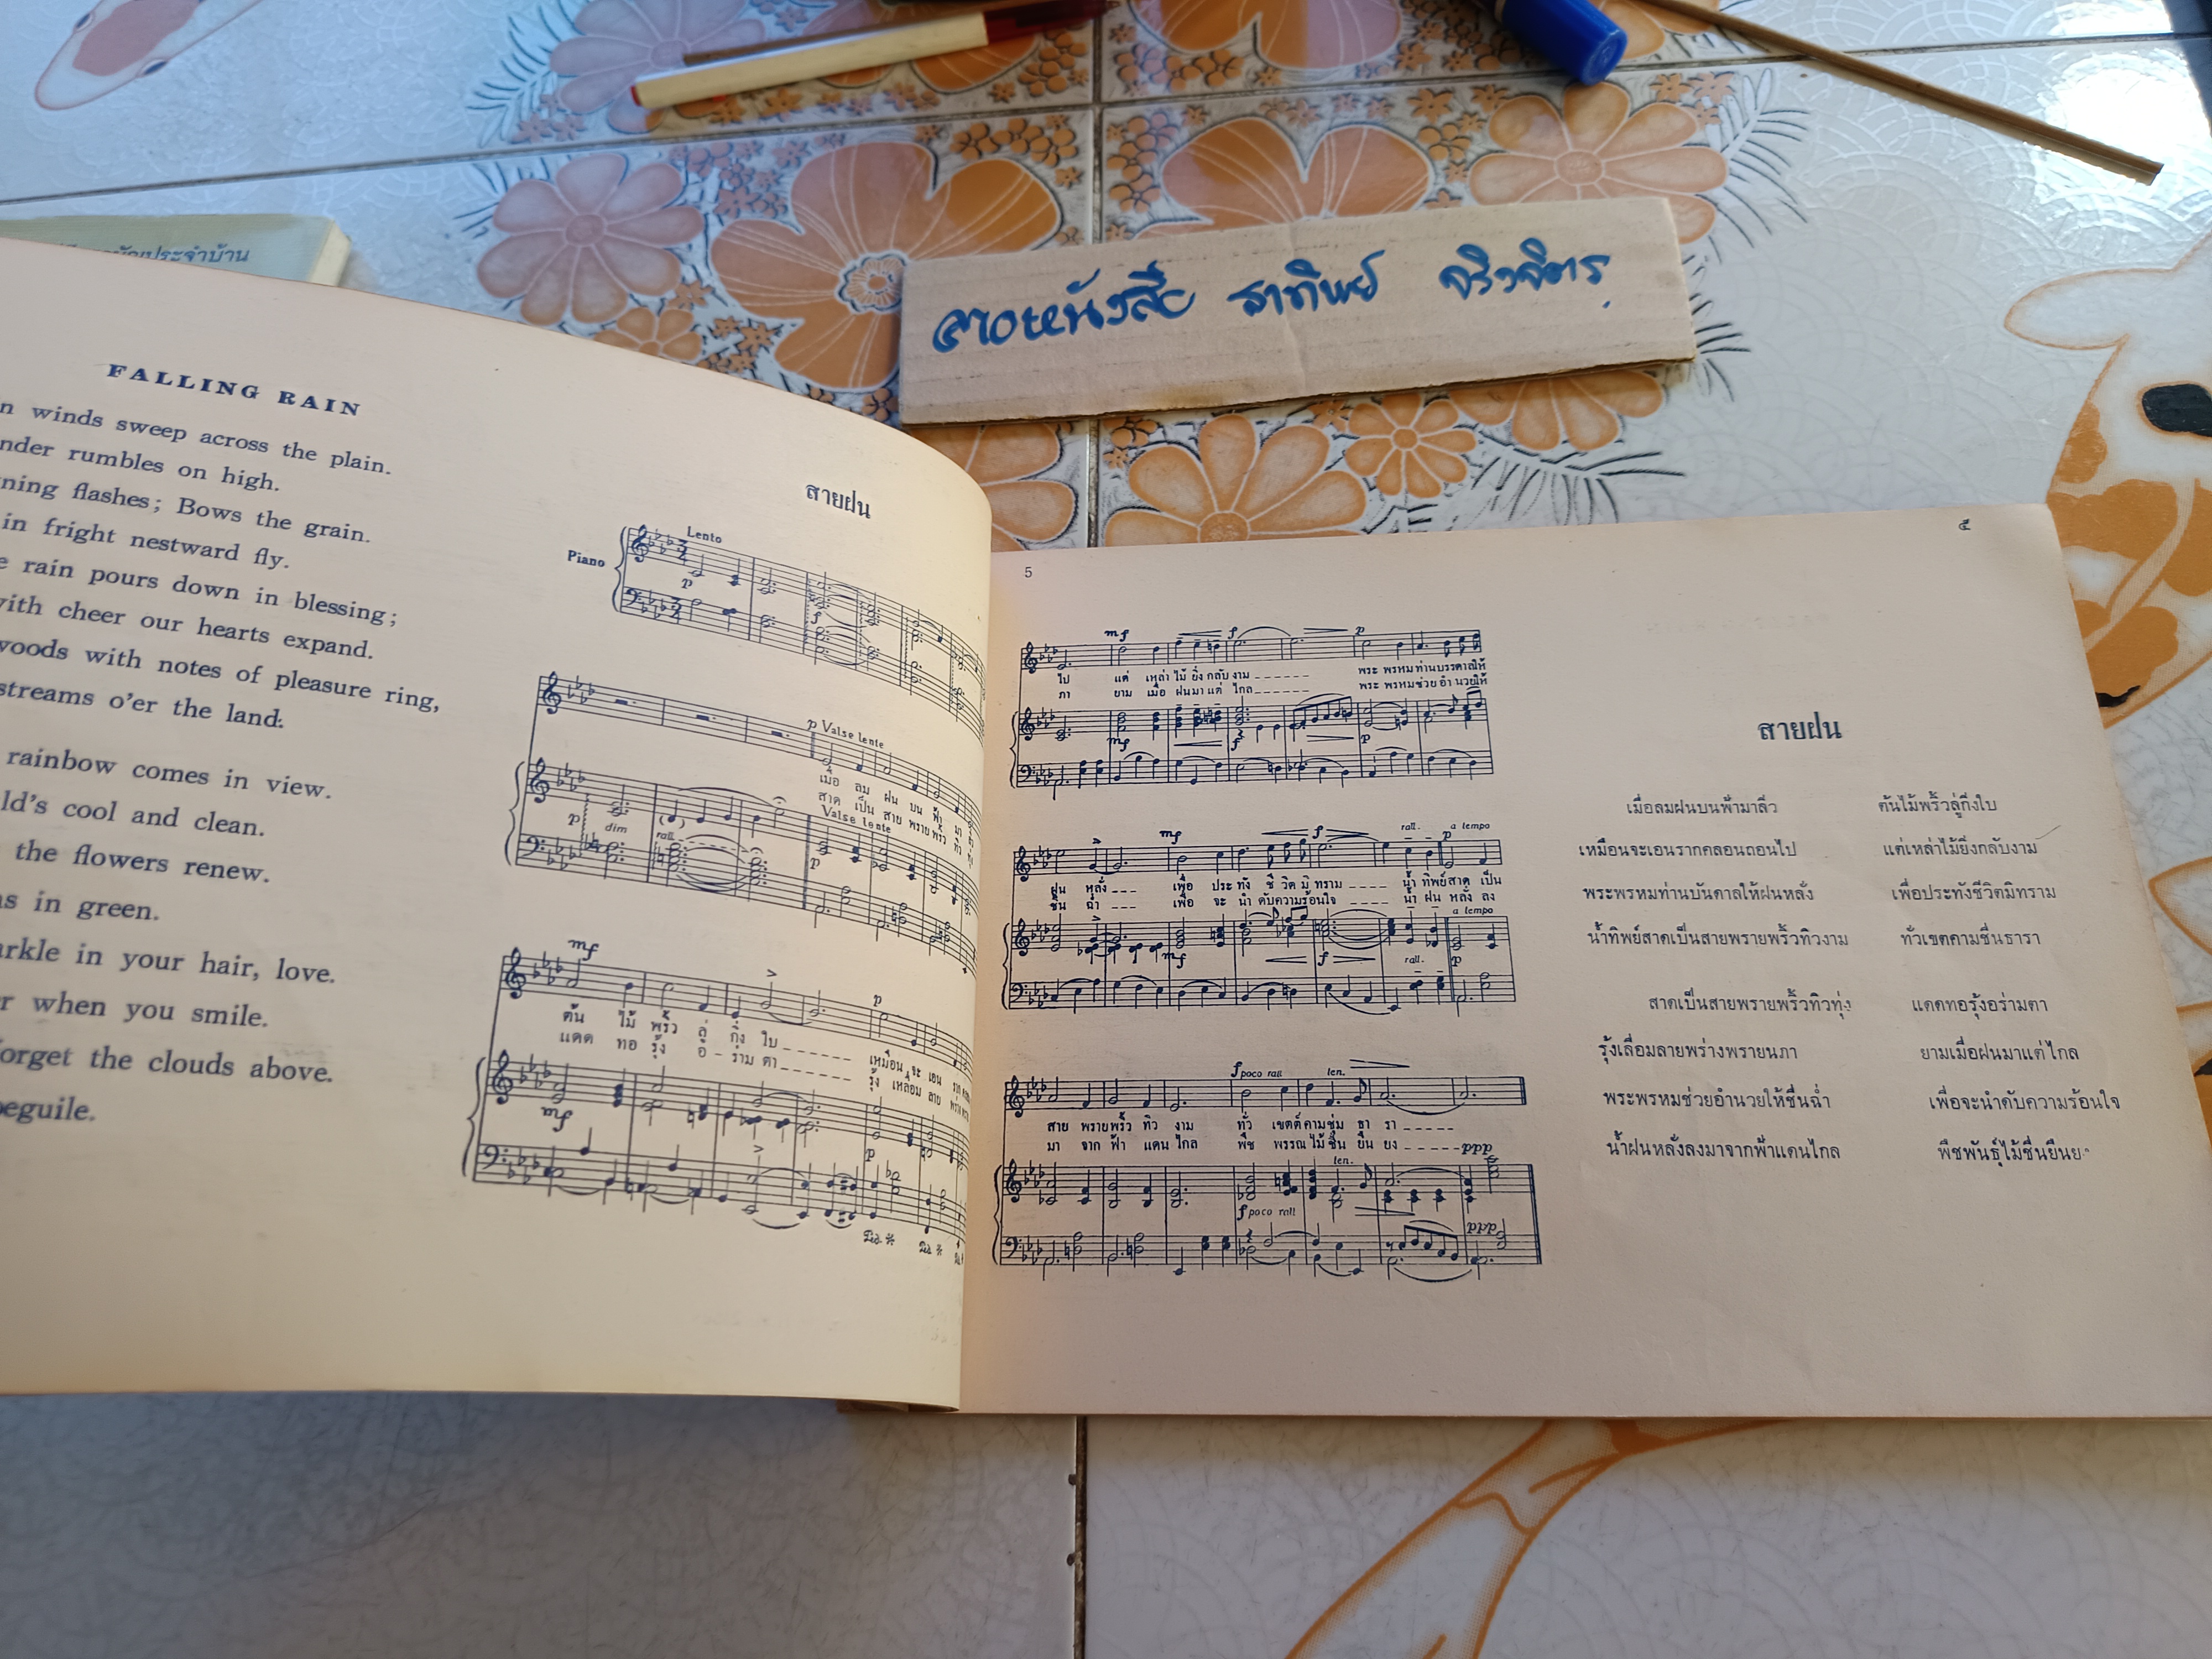 ประจำบ้าน
ลายหนังสือ ธาทิพย์
FALLING RAIN
winds sweep across the plain.
rumbles on high.
flashes; Bows the grain.
in fright nestward fly.
rain pours down in blessing;
with cheer our hearts expand.
woods with notes of pleasure ring,
streams o'er the land.
rainbow comes in view.
cool and clean.
the flowers renew.
in green.
in your hair, love.
when you smile.
forget the clouds above.
beguile.
สายฝน
Lento
Piano
p
f
p Valse lente
เมื่อ ลม ฝน บน ฟ้า มา
สาด เป็น สาย พรายพริ้ว ทิว
Valse lente
p dim rall. p
mf p
ต้น ไม้ พริ้ว ลู่ กิ่ง ใบ
เหมือน จะ เอน
แดด ทอ รุ้ง อ - ร่าม ตา
รุ้ง เหลื่อม ลาย
mf p
5
mf f p
ไป แต่ เหล่า ไม้ ยิ่ง กลับ งาม พระ พรหม ท่านบรรดาลให้
ภา ยาม เมื่อ ฝนมา แต่ ไกล พระ พรหมช่วย อำ นวยให้
mf f p
mf f rall. p a tempo
ฝน หลั่ง เพื่อ ประ ทัง ชี วิต มิ ทราม น้ำ ทิพย์สาด เป็น
ชื่น ฉ่ำ เพื่อ จะ นำ ดับความร้อนใจ น้ำ ฝน หลั่ง ลง
a tempo
mf f rall. p
f poco rall len.
สาย พรายพริ้ว ทิว งาม ทั่ว เขตต์ คามชุ่ม ธา รา
มา จาก ฟ้า แดน ไกล พืช พรรณ ไม้ ชื่น ยืน ยง
ppp
len.
f poco rall
ppp
๕
สายฝน
เมื่อลมฝนบนฟ้ามาลิ่ว ต้นไม้พริ้วลู่กิ่งใบ
เหมือนจะเอนรากคลอนถอนไป แต่เหล่าไม้ยิ่งกลับงาม
พระพรหมท่านบันดาลให้ฝนหลั่ง เพื่อประทังชีวิตมิทราม
น้ำทิพย์สาดเป็นสายพรายพริ้วทิวงาม ทั่วเขตคามชื่นธารา
สาดเป็นสายพรายพริ้วทิวทุ่ง แดดทอรุ้งอร่ามตา
รุ้งเลื่อมลายพร่างพรายนภา ยามเมื่อฝนมาแต่ไกล
พระพรหมช่วยอำนวยให้ชื่นฉ่ำ เพื่อจะนำดับความร้อนใจ
น้ำฝนหลั่งลงมาจากฟ้าแดนไกล พืชพันธุ์ไม้ชื่นยืน